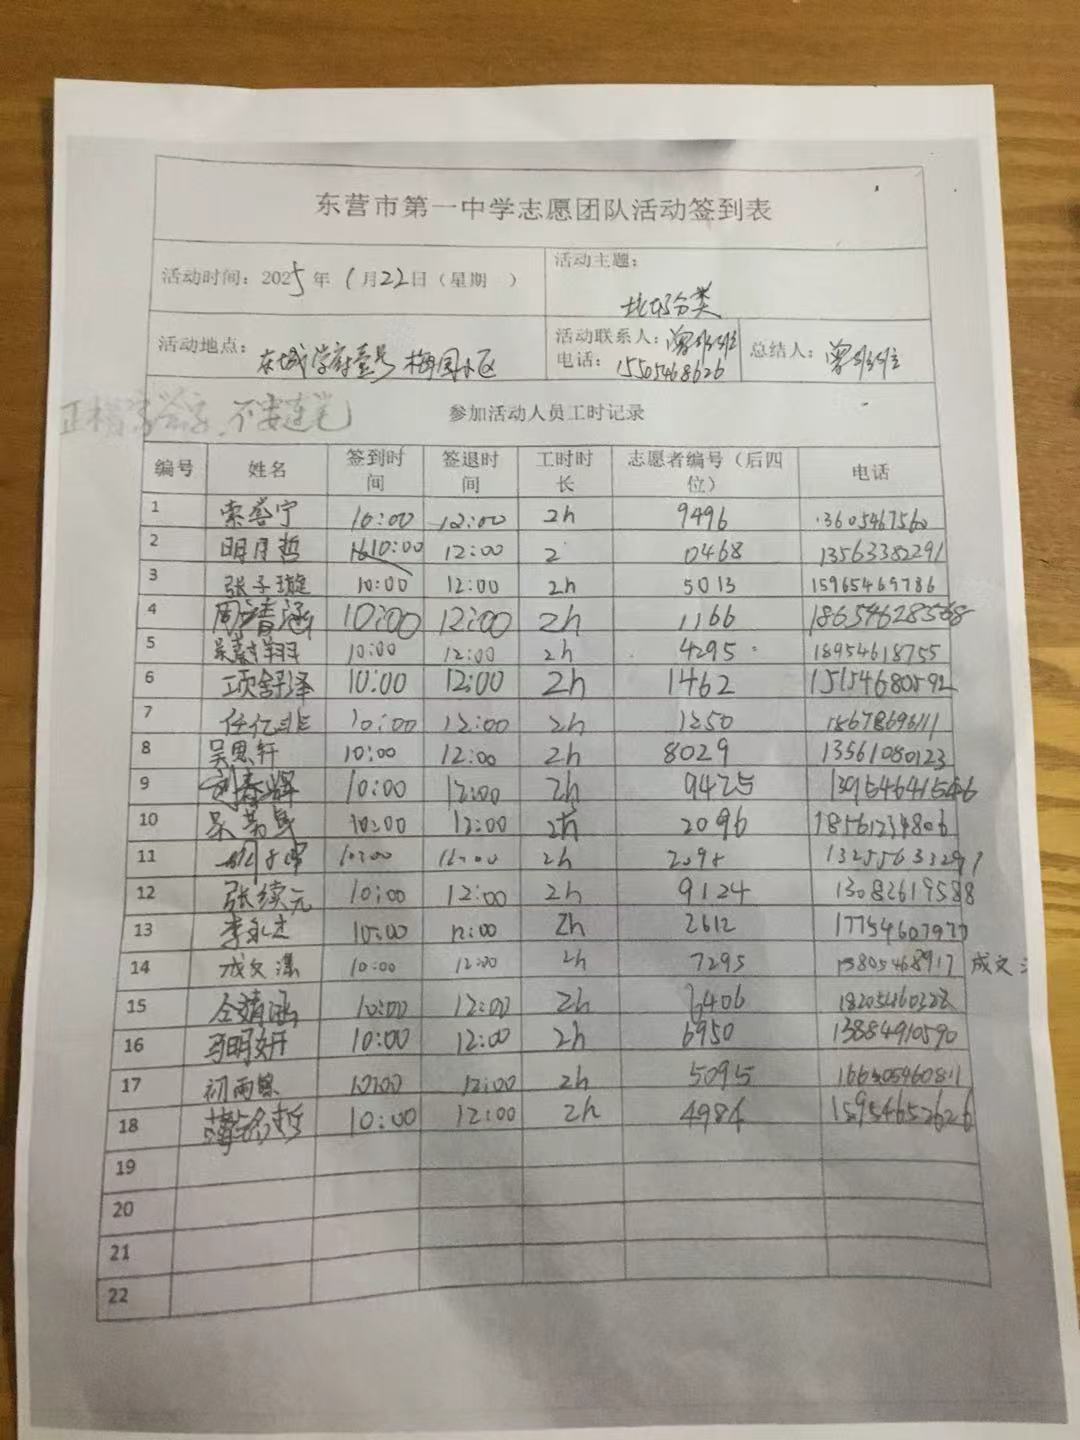 东营市第一中学志愿团队活动签到表
活动时间：2025年1月22日（星期　）
活动主题：
垃圾分类
活动地点：东城学府壹号 梅园小区
活动联系人：
电话：15505468626
总结人：
正楷 签字、不要连笔
参加活动人员工时记录
编号 姓名 签到时间 签退时间 工时时长 志愿者编号（后四位） 电话
1 宁 10:00 12:00 2h 9496 13605467560
2 明月哲 10:00 12:00 2 0468 13563382291
3 张子璇 10:00 12:00 2h 5013 15965469786
4 周靖涵 10:00 12:00 2h 1166 18654628568
5 10:00 12:00 2h 4295 18954618755
6 项舒泽 10:00 12:00 2h 1462 15154680592
7 任亿非 10:00 12:00 2h 1250 18678696111
8 吴思轩 10:00 12:00 2h 8029 13561080123
9 刘春辉 10:00 12:00 2h 9425
10 10:00 12:00 2h 2096 18561234806
11 10:00 2h 13255633291
12 张续元 10:00 12:00 2h 9124 13082619588
13 李永杰 10:00 12:00 2h 2612
14 成文漾 10:00 12:00 2h 7295 13805468917 成文
15 仝靖涵 10:00 12:00 2h 6406
16 马明妍 10:00 12:00 2h 6950 13884910590
17 初雨 10:00 12:00 2h 5095
18 薛铭哲 10:00 12:00 2h 4984 15954652626
19
20
21
22